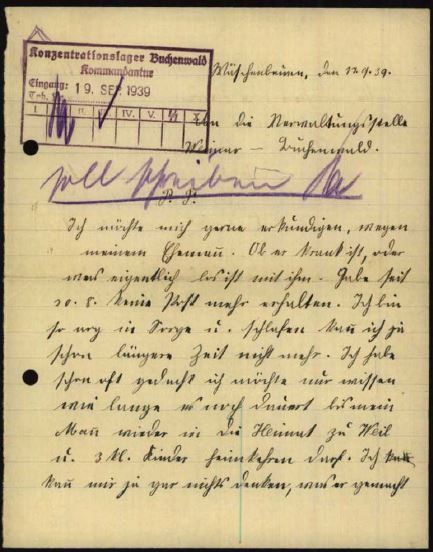 Konzentrationslager Buchenwald
Kommandantur
Eingang: 19. SEP. 1939
I II. IV. V.
den 17.9.39.
An die Verwaltungsstelle
Weimar – Buchenwald.
soll schreiben
Ich möchte mich gerne erkundigen, wegen
meinem Ehemann. Ob er krank ist, oder
was eigentlich los ist mit ihm. Habe seit
20. 8. keine Post mehr erhalten. Ich bin
so arg in Sorge u. schlafen kann ich ja
schon längere Zeit nicht mehr. Ich habe
schon oft gedacht ich möchte nur wissen
wie lange es noch dauert bis mein
Mann wieder in die Heimat zu Weib
u. 3 kl. Kinder heimkehren darf. Ich
kann mir ja gar nichts denken, was er gemacht